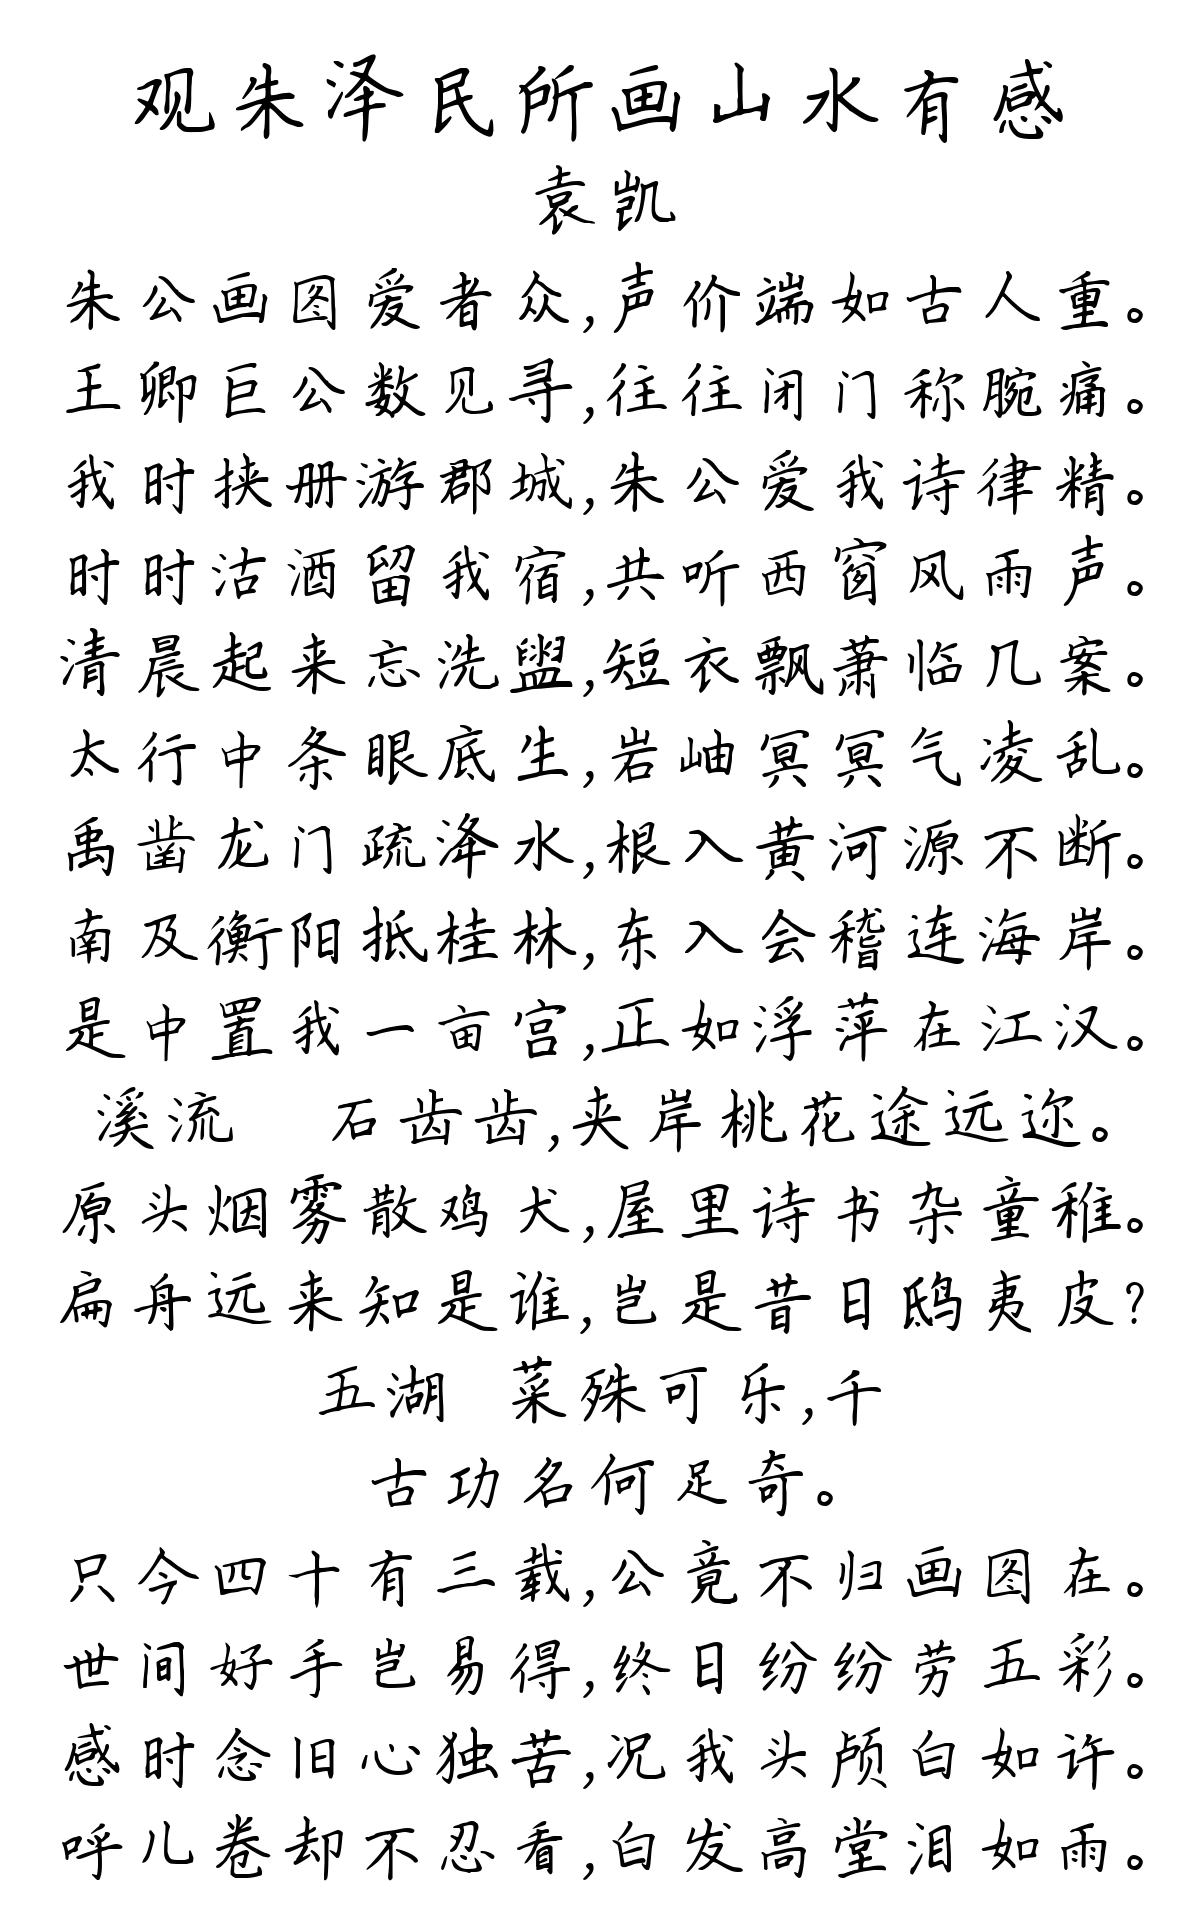 观朱泽民所画山水有感
袁凯
朱公画图爱者众,声价端如古人重。
王卿巨公数见寻,往往闭门称腕痛。
我时挟册游郡城,朱公爱我诗律精。
时时沽酒留我宿,共听西窗风雨声。
清晨起来忘洗盥,短衣飘萧临几案。
太行中条眼底生,岩岫冥冥气凌乱。
禹凿龙门疏泽水,根入黄河源不断。
南及衡阳抵桂林,东入会稽连海岸。
是中置我一亩宫,正如浮萍在江汉。
溪流 石齿齿,夹岸桃花途远迩。
原头烟雾散鸡犬,屋里诗书杂童稚。
扁舟远来知是谁,岂是昔日鸱夷皮?
五湖 菜殊可乐,千
古功名何足奇。
只今四十有三载,公竟不归画图在。
世间好手岂易得,终日纷纷劳五彩。
感时念旧心独苦,况我头颅白如许。
呼儿卷却不忍看,白发高堂泪如雨。